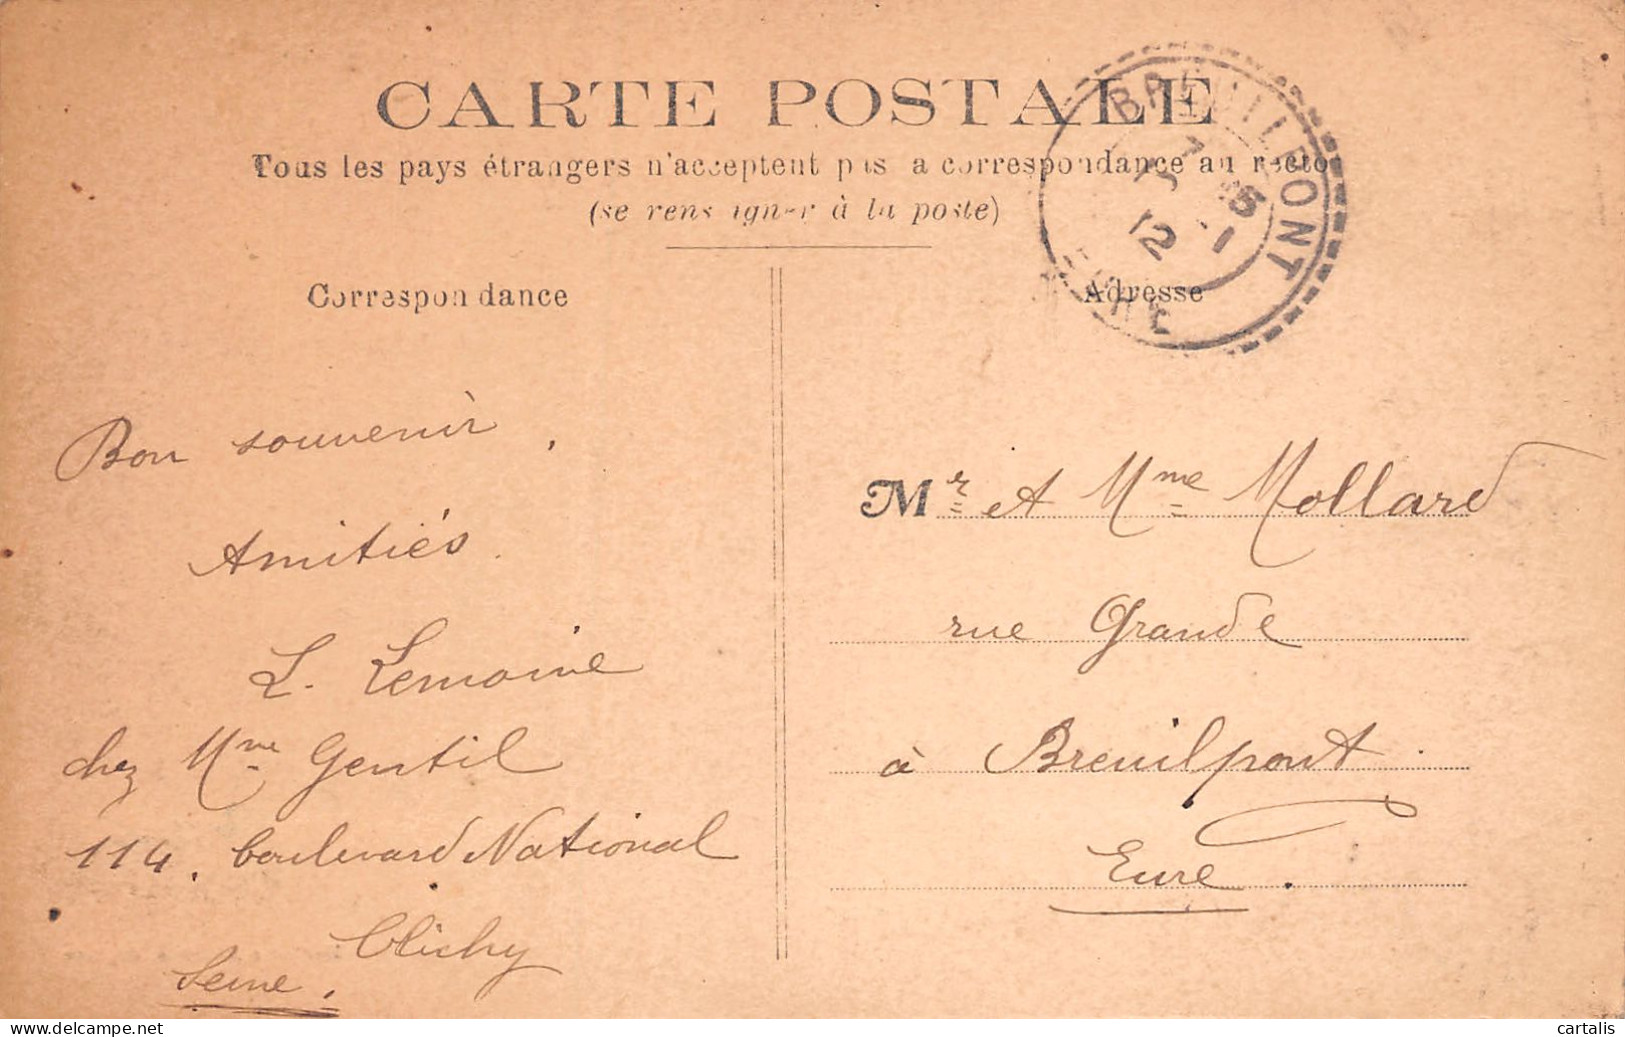 CARTE POSTALE
Tous les pays étrangers n'acceptent pas la correspondance au recto
(se renseigner à la poste)
Correspondance
Adresse
BREUILPONT
EURE
12
Bon souvenir.
Amitiés.
L. Lemoine
chez Mme Gentil
114, boulevard National
Clichy
Seine.
Mr et Mme Mollard
rue Grande
à Breuilpont.
Eure.
delcampe.net
cartalis
The World's Greatest Marketplace for Collectors